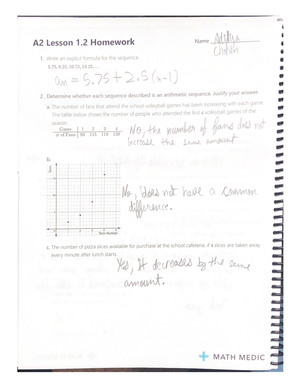 A2 Lesson 1.2 Homework
Name Aditya
1. Write an explicit formula for the sequence
5.75, 8.25, 10.75, 13.25, ...
an = 5.75 + 2.5(x-1)
2. Determine whether each sequence described is an arithmetic sequence. Justify your answer.
a. The number of fans that attend the school volleyball games has been increasing with each game.
The table below shows the number of people who attended the first 4 volleyball games of the
season.
Game 1 2 3 4
# of Fans
No, the number of fans does not
increase the same amount.
b.
No, does not have a common
difference.
Term Number
c. The number of pizza slices available for purchase at the school cafeteria, if 4 slices are taken away
every minute after lunch starts.
Yes, It decreases by the same
amount.
MATH MEDIC